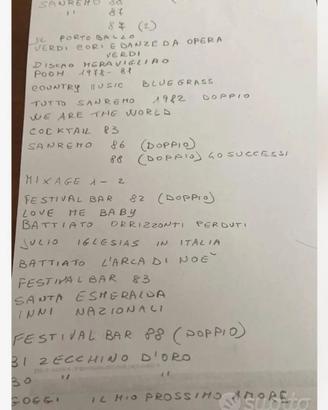 SANREMO 86
" 87
87 (2)
IL PORTO BALLO
VERDI CORI E DANZE DA OPERA
VERDI
DISCHO MERAVIGLIAO
POOH 1978-81
COUNTRY MUSIC BLUEGRASS
TUTTO SANREMO 1982 DOPPIO
WE ARE THE WORLD
COCKTAIL 83
SANREMO 86 (DOPPIO)
88 (DOPPIO) 40 SUCCESSI
MIXAGE 1-2
FESTIVAL BAR 82 (DOPPIO)
LOVE ME BABY
BATTIATO ORRIZZONTI PERDUTI
JULIO IGLESIAS IN ITALIA
BATTIATO L'ARCA DI NOE'
FESTIVAL BAR 83
SANTA ESMERALDA
INNI NAZIONALI
FESTIVAL BAR 88 (DOPPIO)
31 ZECCHINO D'ORO
30 " "
GOGGI IL MIO PROSSIMO AMORE
subito